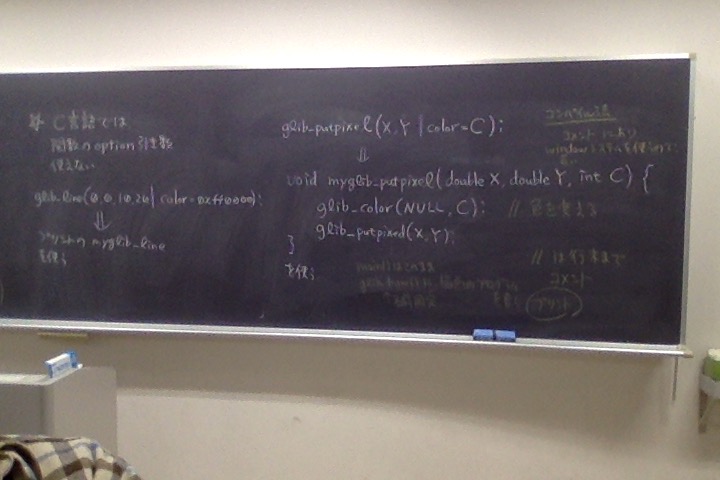 ※ C言語では
関数のoption引き数
使えない
glib_line(0,0,10,20| color=0xff0000);
⇓
プリントの myglib_line
を使う
glib_putpixel(X,Y | color=C);
⇓
void myglib_putpixel(double X, double Y, int C) {
glib_color(NULL, C); // 色を変える
glib_putpixed(X,Y);
}
を使う
コンパイル法
コメントにあり
windowシステムを使うので
// は行末まで
コメント
プリント